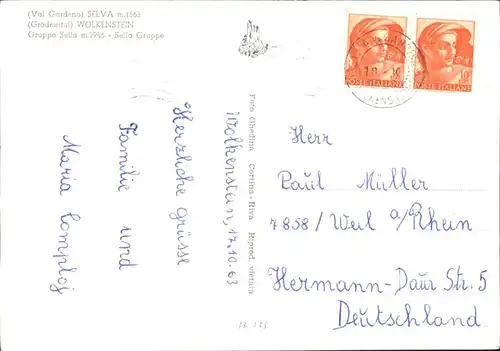 (Val Gardena) SELVA m.1563
(Grödnertal) WOLKENSTEIN
Gruppo Sella m.2946 - Sella Gruppe
Wolkenstein, 17.10.63
Herzliche grüsse
Familie und
Maria Comploj
Foto Ghedina Cortina - Riva Riprod. vietata
POSTE ITALIANE
10
POSTE ITALIANE
Herr
Paul Müller
7858/ Weil a/Rhein
Hermann-Daur Str. 5
Deutschland